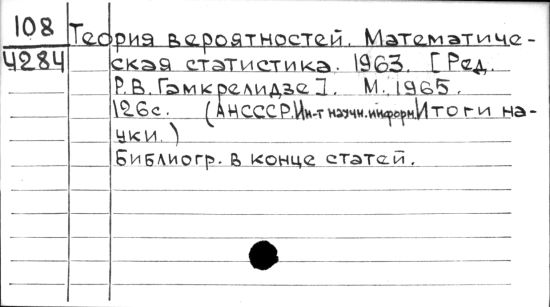 108
4284
Теория вероятностей. Математиче-
ская статистика. 1963. [Ред.
Р.В. Гамкрелидзе]. М. 1965.
126с. (АНСССР.Ин-т научн.информ.Итоги на-
уки.)
Библиогр. в конце статей.